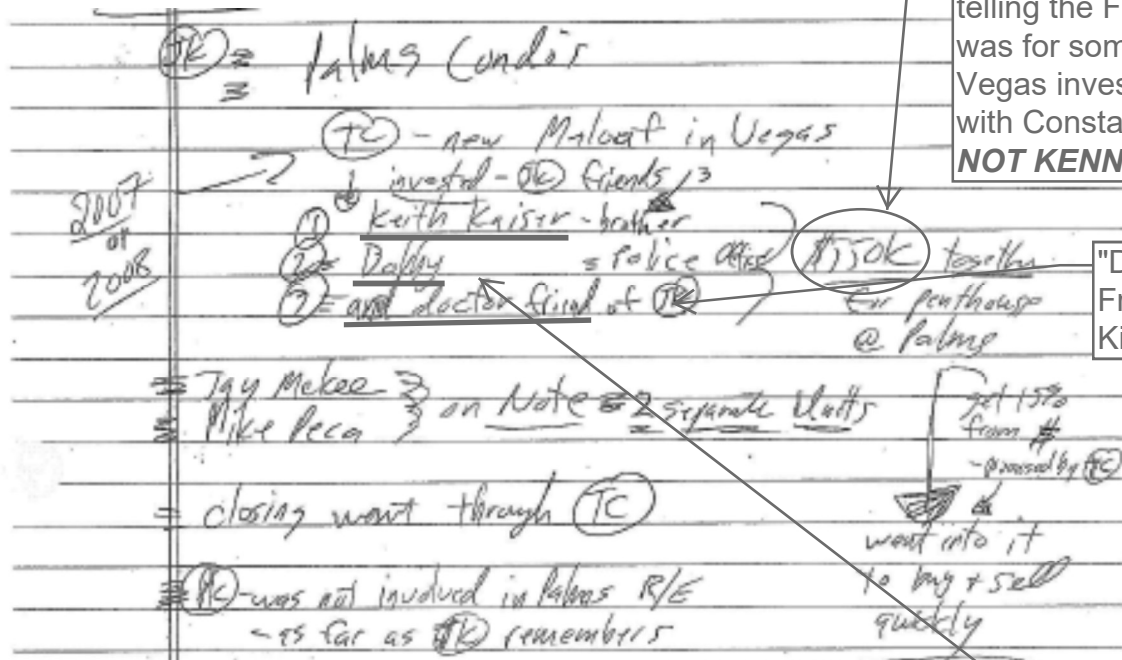 telling the F
was for som
Vegas inves
with Consta
NOT KENN
JK = Palms Condos
TC - new Maloof in Vegas
2007 or 2008
invested - JK friends
① Keith Kaiser - brother
② = Dobby = Police
③ = and doctor friend of JK
together
for penthouse
@ Palms
"D
Fr
Ki
= Jay Mckee
= Mike Peca } on Note = 2 separate Units
get 15%
from #
- promised by TC
= closing went through TC
went into it
to buy + sell
quickly
PC - was not involved in Palms R/E
- as far as JK remembers